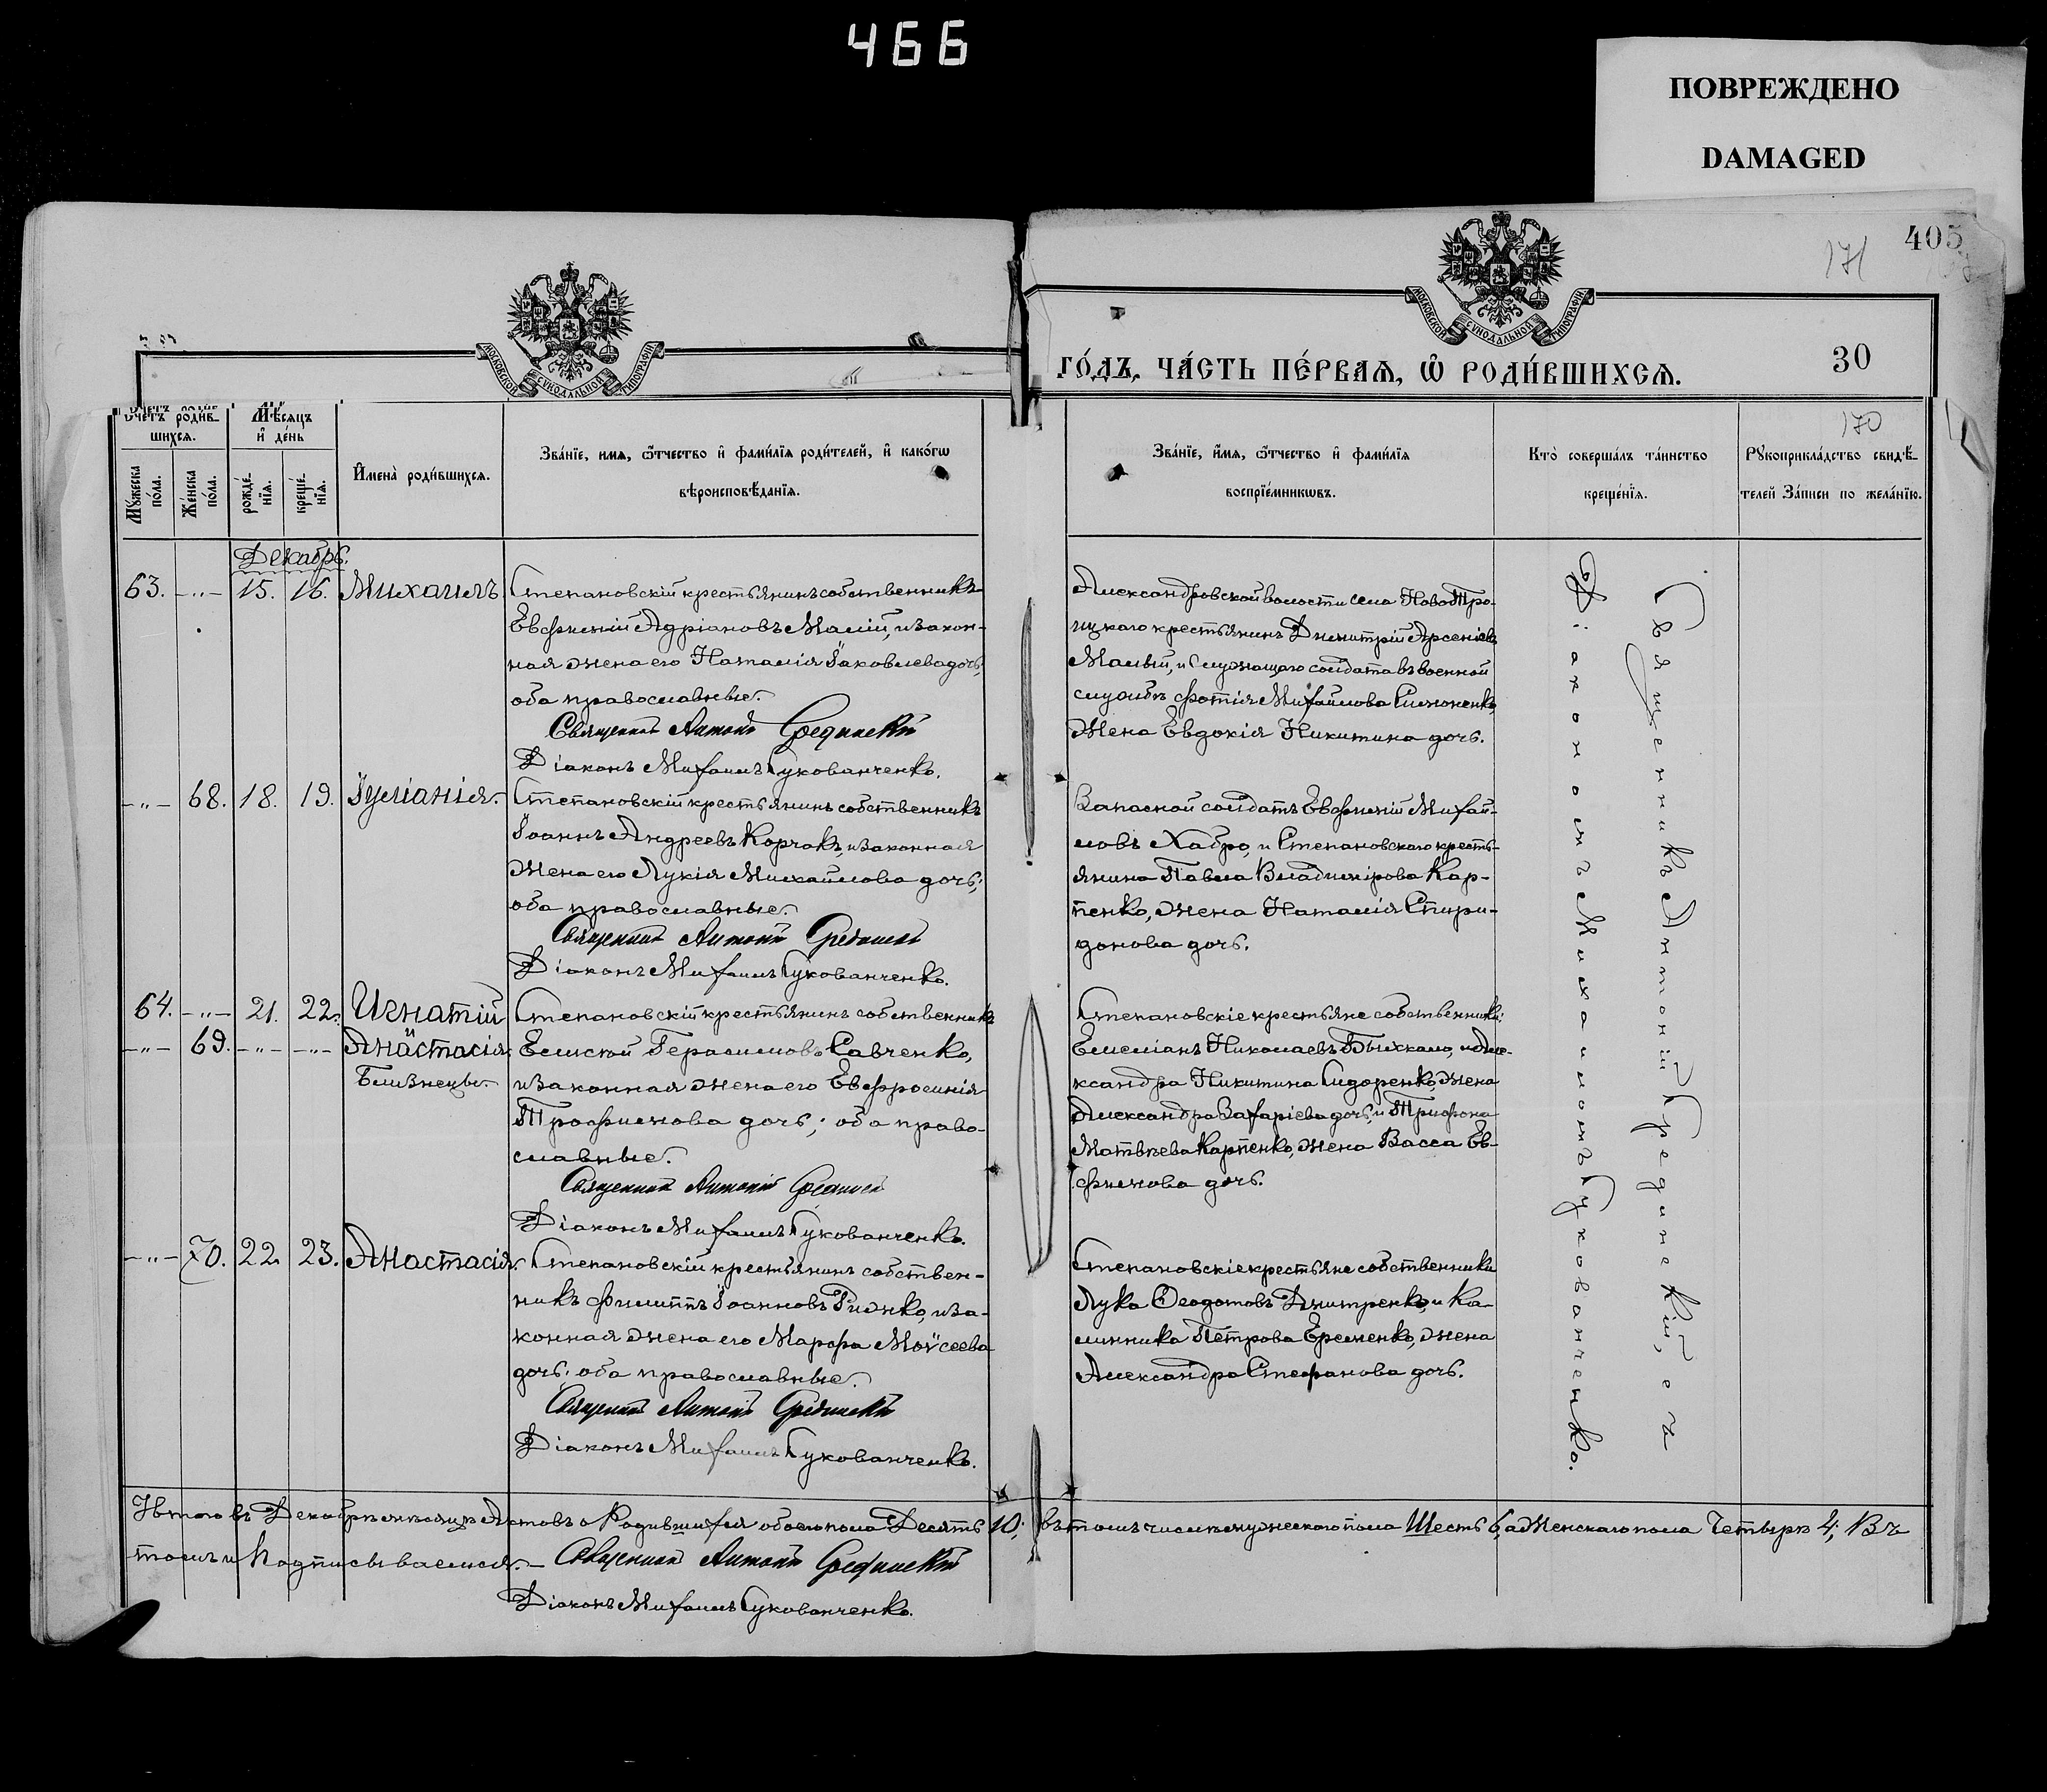 466
ПОВРЕЖДЕНО
DAMAGED
405
171
МОСКОВСКОЙ СѴНОДАЛЬНОЙ ТИПОГРАФІИ.
МОСКОВСКОЙ СѴНОДАЛЬНОЙ ТИПОГРАФІИ.
ГО́ДЪ, ЧА́СТЬ ПЕ́РВАѦ, Ѡ҆ РОДИ́ВШИХСѦ.
30
170
Счетъ роди́в-
шихсѧ.
Мꙋ́жеска по́ла.
Же́нска по́ла.
Мѣ́сѧцъ
и҆ де́нь
рожде́-нїѧ.
креще́-нїѧ.
И҆мена̀ роди́вшихсѧ.
Зва́нїе, имѧ, ѻ҆́тчество и҆ фами́лїѧ роди́телей, и҆ како́гѡ
вѣроисповѣ́данїѧ.
Зва́нїе, и҆́мѧ, ѻ҆́тчество и҆ фами́лїѧ
воспрїе́мникѡвъ.
Кто̀ соверша́лъ та́инство
креще́нїѧ.
Рꙋкоприкла́дство свидѣ́-
телей За́писи по жела́нїю.
Декабрь.
63. -"- 15. 16. Михаилъ
Степановскій крестьянинъ собственникъ
Евфимій Адріановъ Малій, и закон-
ная жена его Наталія Іаковлева дочь;
оба православные.
Священникъ Антоній Срединскій
Діаконъ Михаилъ Сукованченко.
Александровской волости села НовоТро-
ицкаго крестьянинъ Димитрій Арсеніевъ
Малый, и Служащаго солдата въ военной
службѣ Фотія Михайлова Симоненко,
жена Евдокія Никитина дочь.
-"- 68. 18. 19. Іуліанія.
Степановскій крестьянинъ собственникъ
Іоаннъ Андреевъ Корчакъ, и законная
жена его Лукія Михайлова дочь;
оба православные.
Священникъ Антоній Срединскій
Діаконъ Михаилъ Сукованченко.
Запасной солдатъ Евфимій Михай-
ловъ Хабро, и Степановскаго кресть-
янина Павла Владимірова Кар-
пенко, жена Наталія Спири-
донова дочь.
64. -"- 21. 22. Игнатій
и
-"- 69. -"- -"- Анастасія
Близнецы.
Степановскій крестьянинъ собственникъ
Елисей Герасимовъ Савченко,
и законная жена его Евфросинія
Трофимова дочь; оба право-
славные.
Священникъ Антоній Срединскій
Діаконъ Михаилъ Сукованченко.
Степановскіе крестьяне собственники:
Емеліанъ Николаевъ и Але-
ксандра Никитина Сидоренко, жена
Александра Захаріева дочь, и Трифона
Матвѣева Карпенко, жена Васса Ев-
фимова дочь.
-"- 70. 22. 23. Анастасія.
Степановскій крестьянинъ собствен-
никъ Филиппъ Іоанновъ и за-
конная жена его Марфа Моѵсеева
дочь; оба православные.
Священникъ Антоній Срединскій
Діаконъ Михаилъ Сукованченко.
Степановскіе крестьяне собственники
Лука Ѳеодотовъ Дмитренко, и Ка-
линника Петрова Еременко, жена
Александра Стефанова дочь.
Священникъ Антоній Срединскій, съ
Діакономъ Михаиломъ Сукованченко.
Итого въ Декабрѣ мѣсяцѣ Актовъ о Родившихся обоего пола Десять 10; въ томъ числѣ мужескаго пола Шесть 6, а Женскаго пола Четыре 4; Въ
томъ и Подписываемся. — Священникъ Антоній Срединскій
Діаконъ Михаилъ Сукованченко.